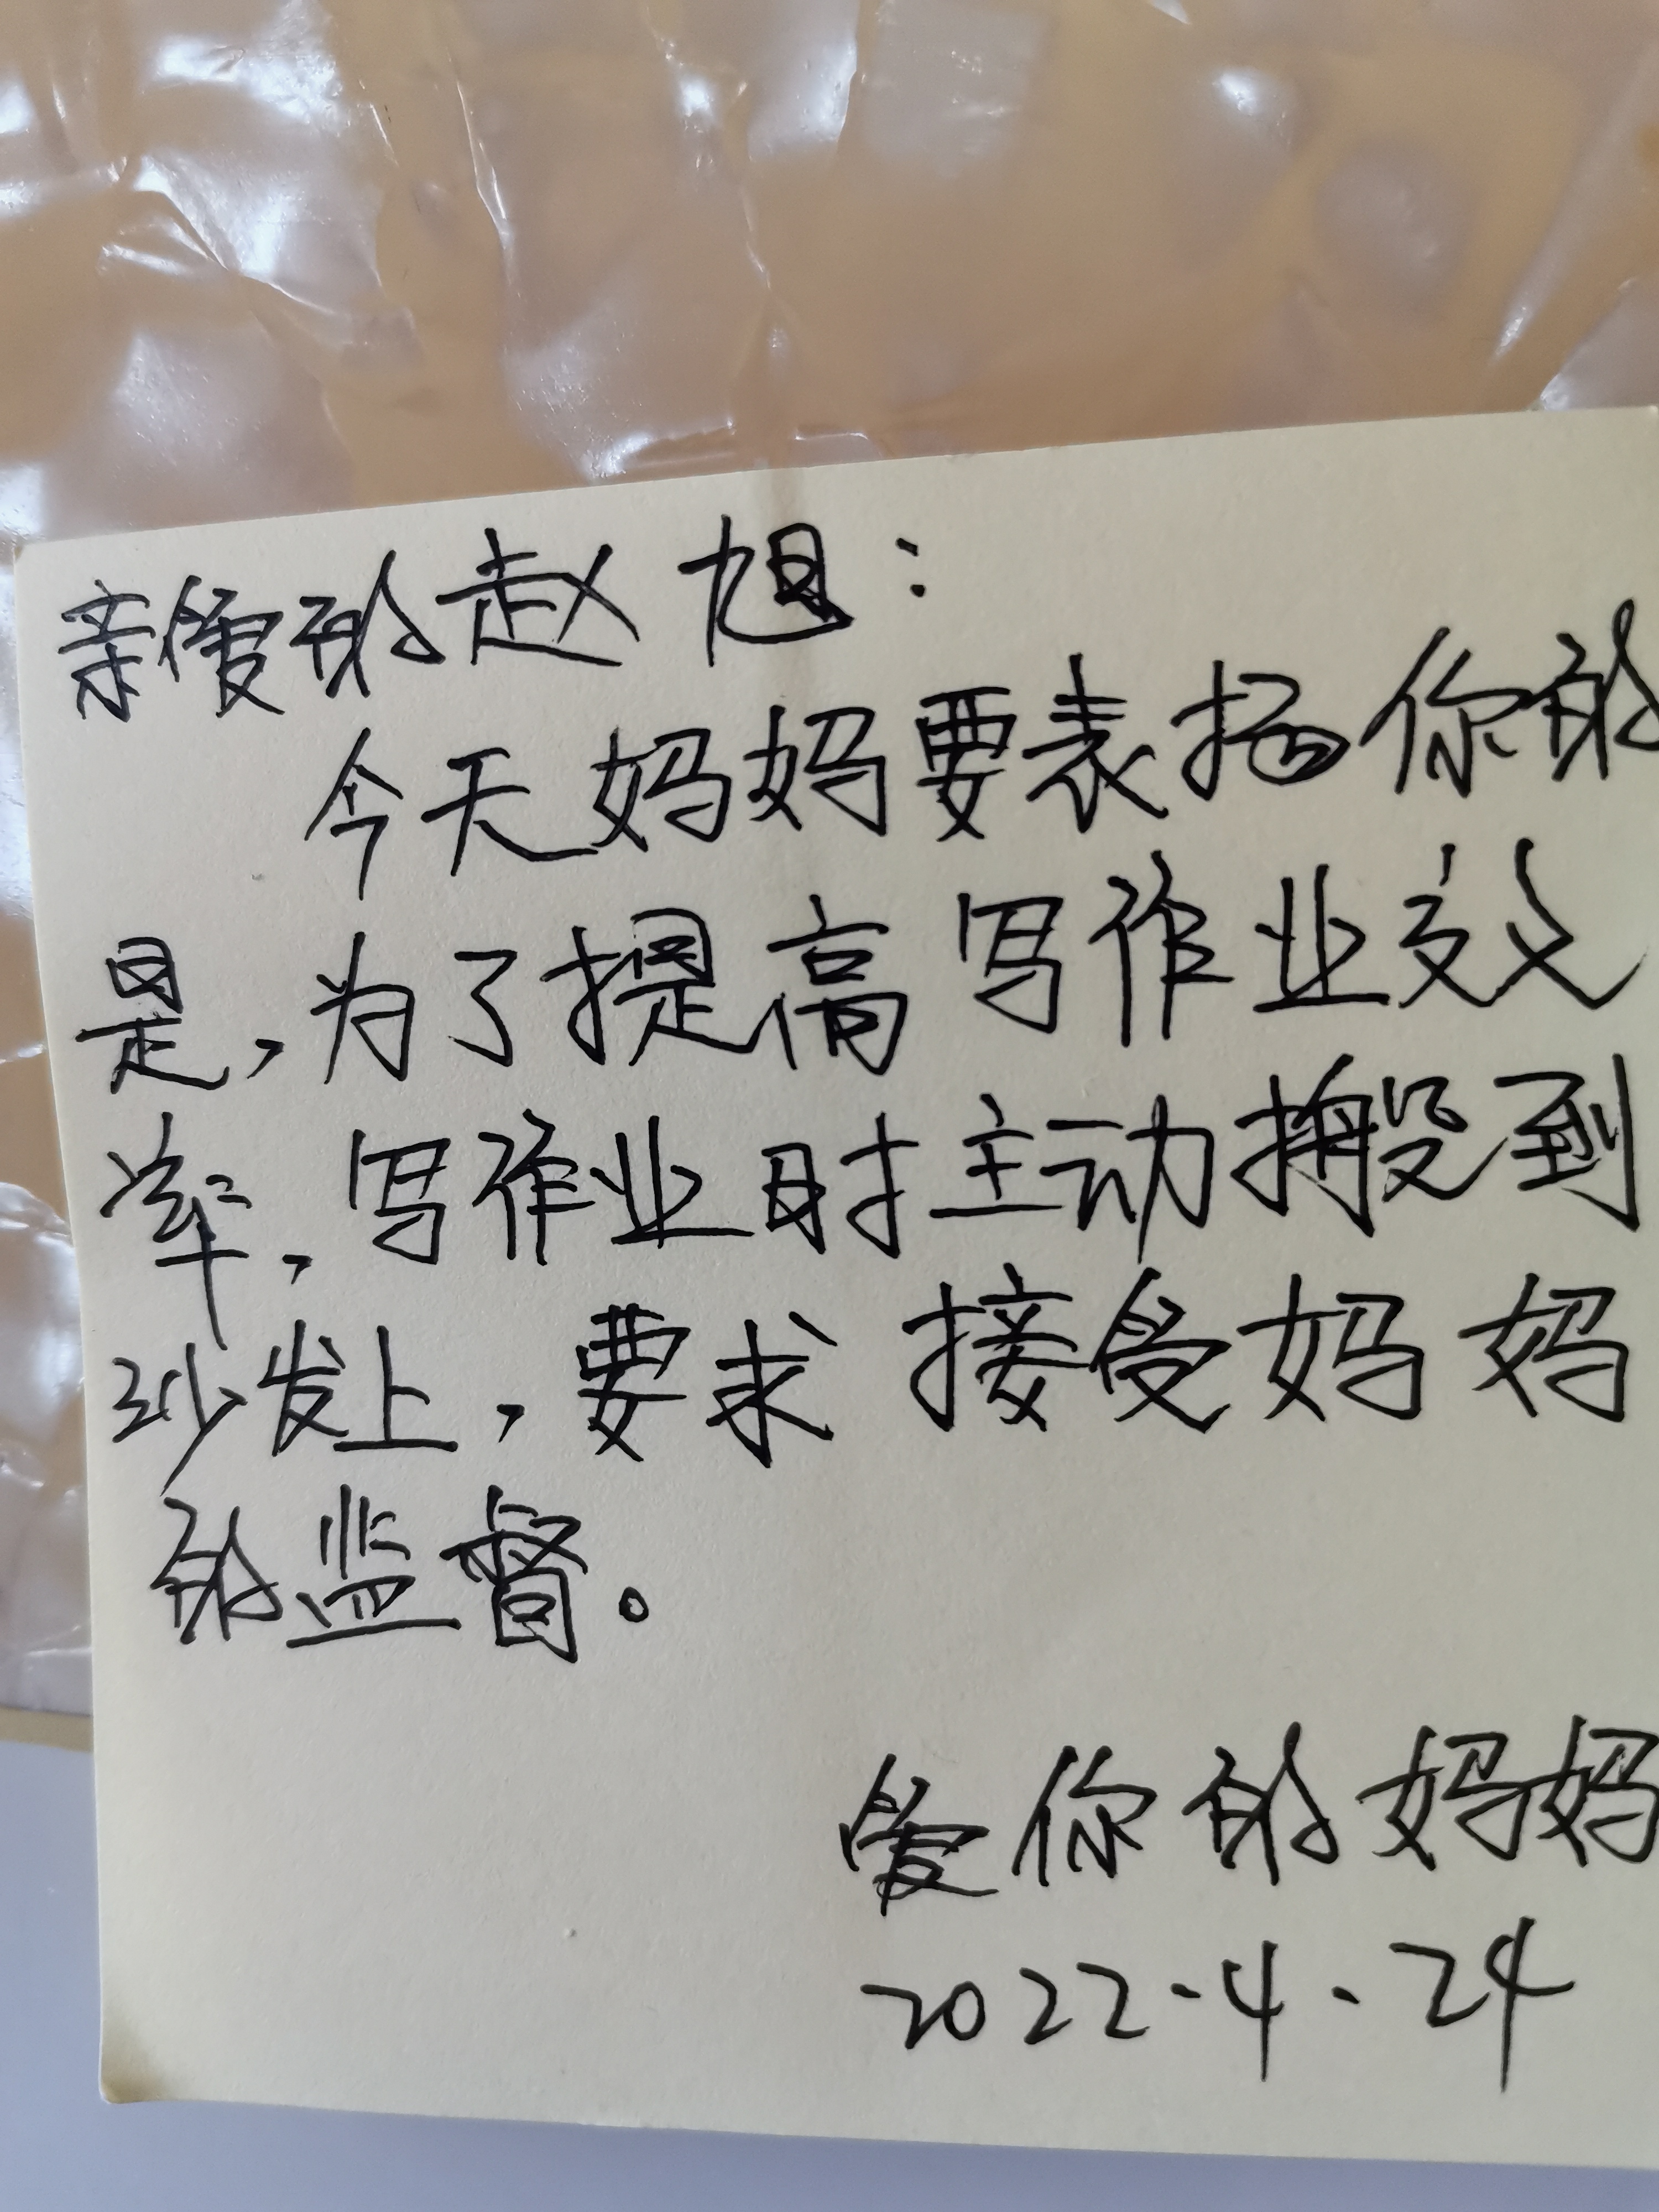 亲爱的赵旭：
今天妈妈要表扬你的
是，为了提高写作业效
率，写作业时主动搬到
沙发上，要求接受妈妈
的监督。
爱你的妈妈
2022.4.24